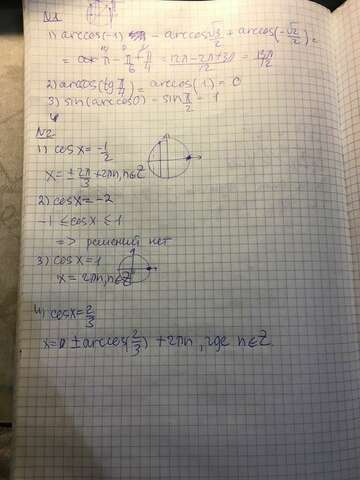 N1.
1) arccos(-1) - arccos √3/2 + arccos(-√2/2) =
= π - π/6 + π/4 = (12π-2π+3π)/12 = 13π/12
2) arccos(tg π/4) = arccos(1) = 0
3) sin(arccos0) = sin π/2 = 1
N2.
1) cos x = -1/2
x = ± 2π/3 + 2πn, n∈Z
2) cosx = -2
-1 ≤ cosx ≤ 1
=> решений нет
3) cosx = 1
x = 2πn, n∈Z
4) cosx = 2/3
x = ± arccos(2/3) + 2πn, где n∈Z